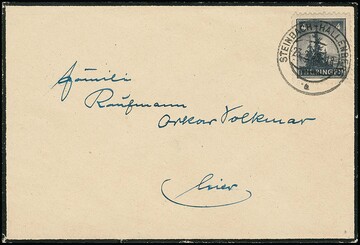 STEINBACH-HALLENB
a
THÜRINGEN
Familie
Kaufmann
Oskar Volkmar
hier